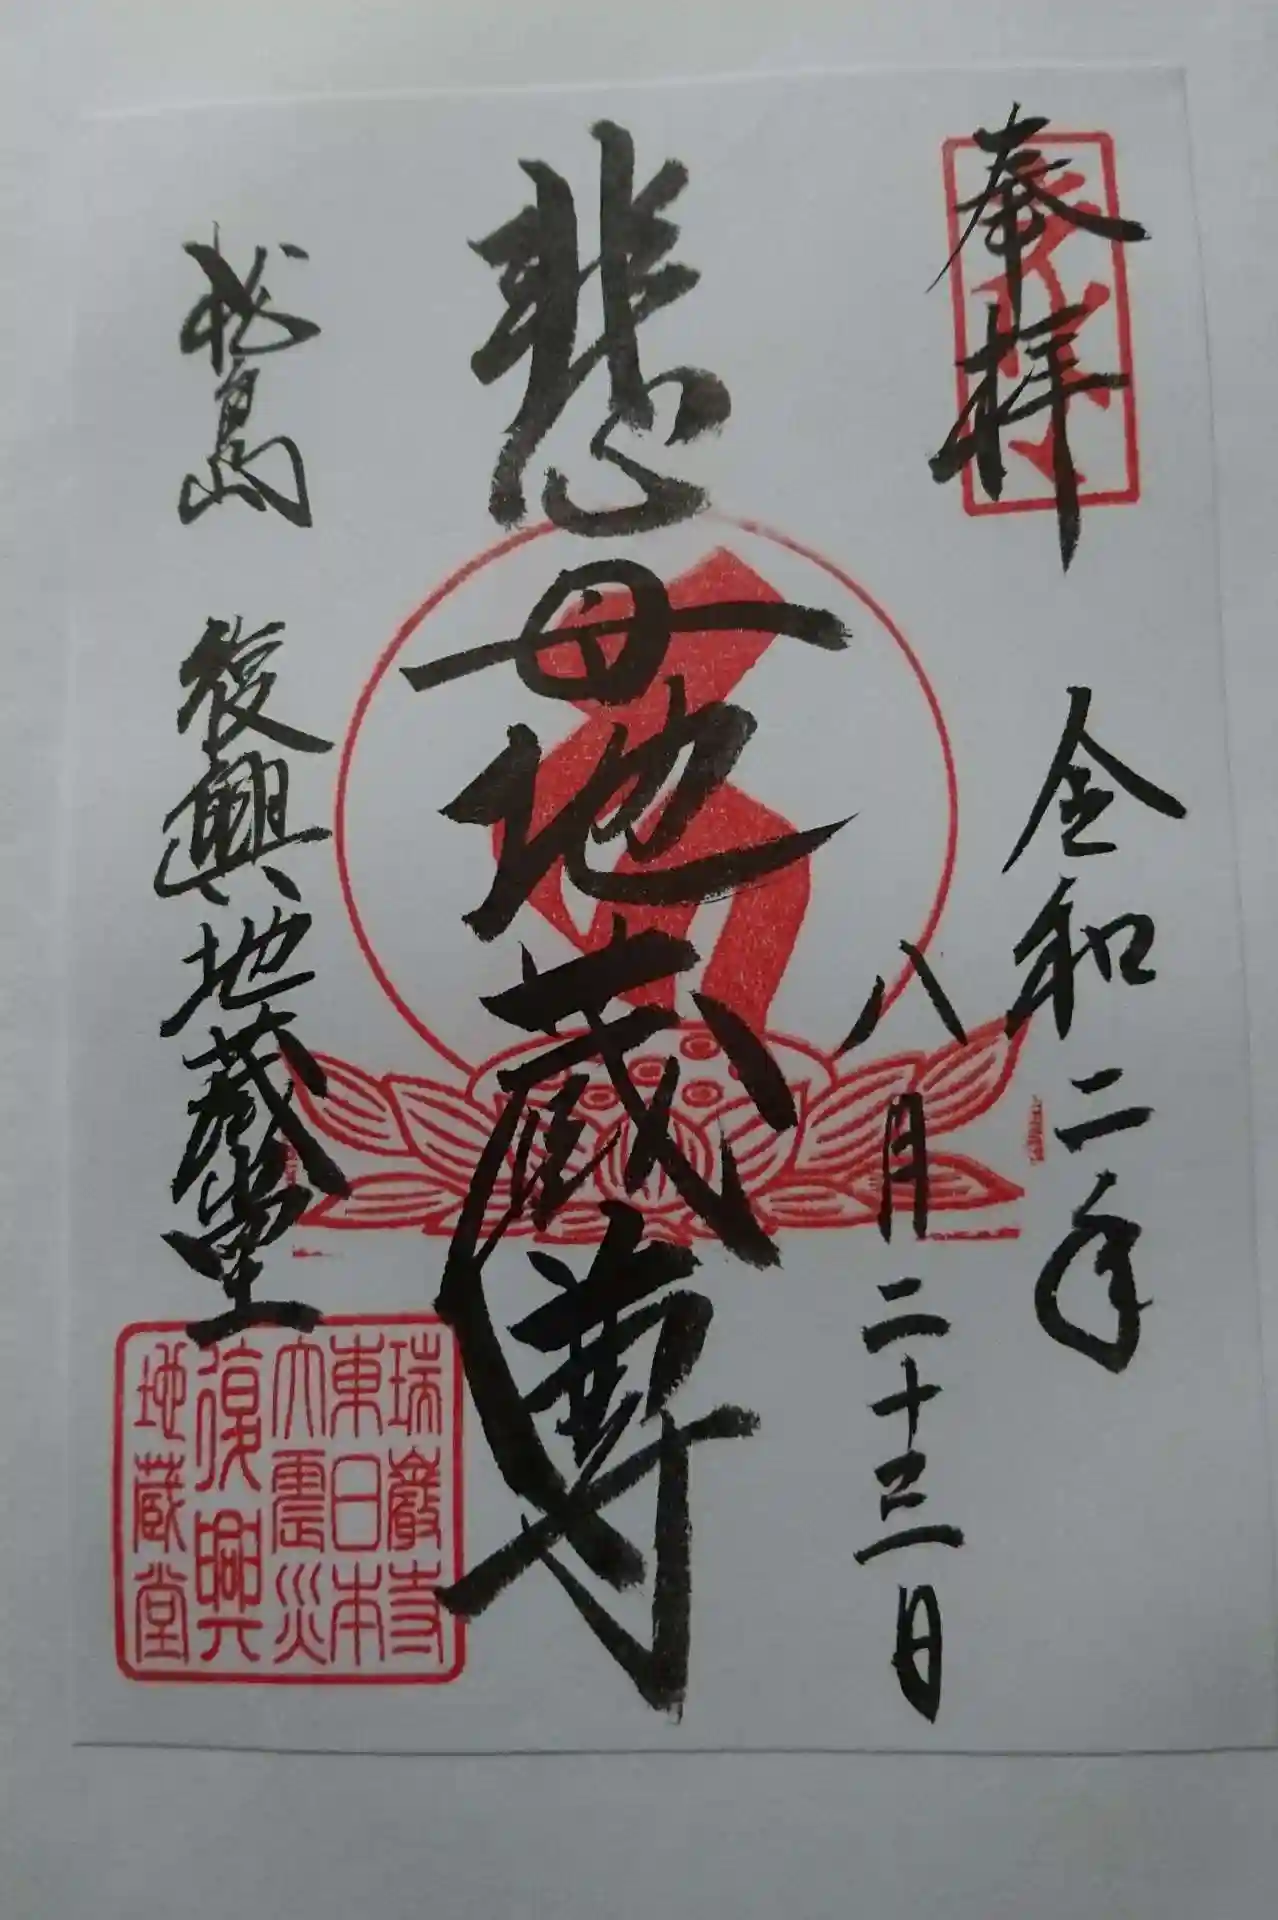 奉拝
令和二年
八月二十三日
悲母地蔵尊
松島 復興地蔵堂
瑞巖寺
東日本
大震災
復興
地蔵堂